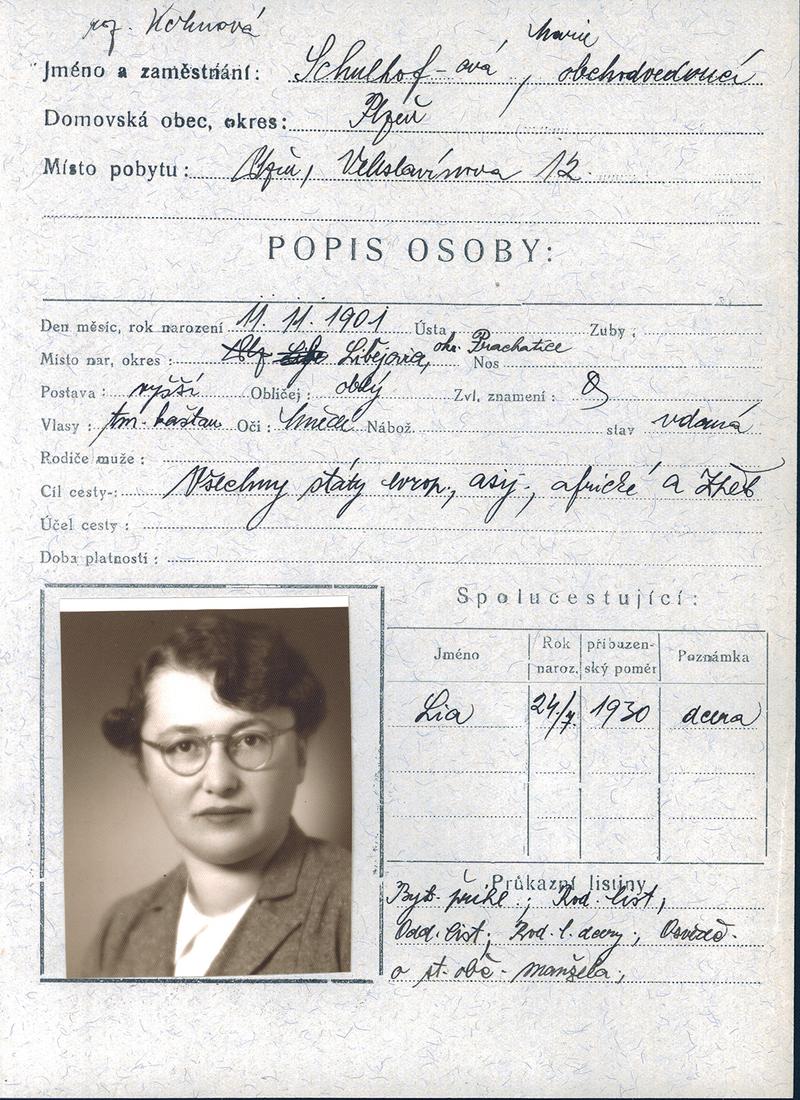 roz. Kohnová
Marie
Jméno a zaměstnání: Schulhof-ová, obchodvedoucí
Domovská obec, okres: Plzeň
Místo pobytu: Plzeň, Veleslavínova 12.
POPIS OSOBY:
Den měsíc, rok narození 11. 11. 1901 Ústa Zuby:
Místo nar, okres: Libějovice, okr. Prachatice Nos
Postava: vyšší Obličej: oblý Zvl. znamení:
Vlasy: tm. kaštan Oči: hnědé Nábož. stav vdaná
Rodiče muže:
Cíl cesty-: Všechny státy evrop., asij., africké a
Účel cesty:
Doba platnosti:
Spolucestující:
Jméno Rok naroz. příbuzenský poměr Poznámka
Lia 24/7. 1930 dcera
Průkazní listiny
Byt. přihl.; Rod. list,
Odd. list; Rod. l. dcery; Osvědč.
o st. obč. manžela,